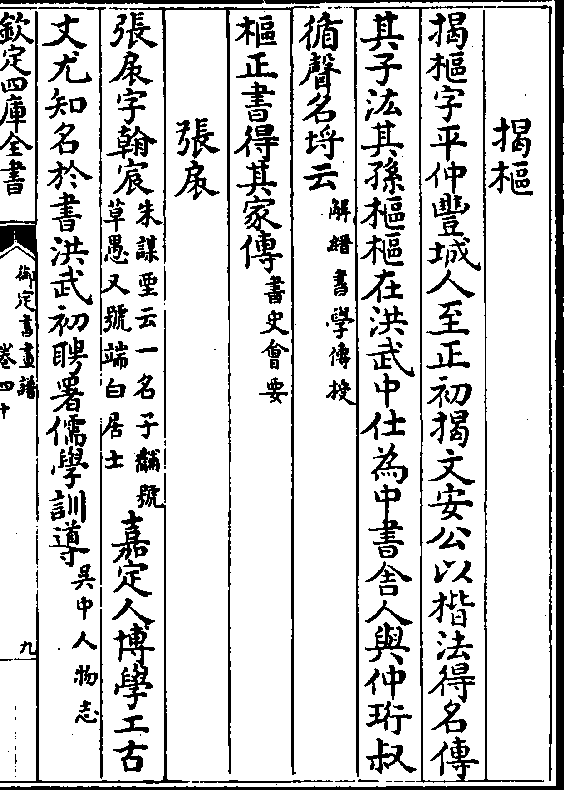 揭樞
揭樞字平仲豐城人至正初揭文安公以楷法得名傳
其子汯其孫樞樞在洪武中仕為中書舍人與仲珩叔
循聲名埒云解縉書學傳授
樞正書得其家傳書史會要
張扆
張扆字翰宸朱謀垔云一名子黼號草愚又號端白居士嘉定人博學工古
文尤知名於書洪武初聘署儒學訓導吳中人物志
欽定四庫全書
御定書畫譜
卷四十
九